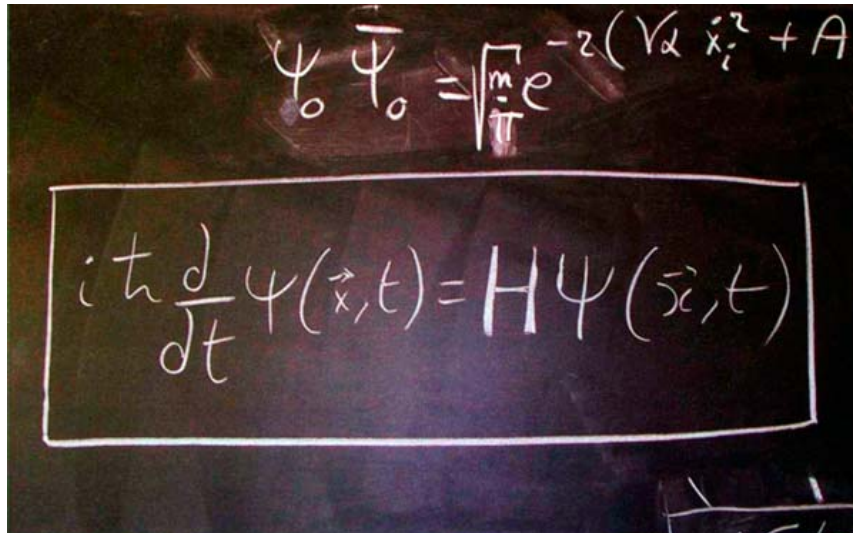 ψ₀ ψ̅₀ = √(m/π) e^{-2(√α ẋᵢ² + A
iħ d/dt ψ(x⃗,t) = H ψ(x⃗,t)